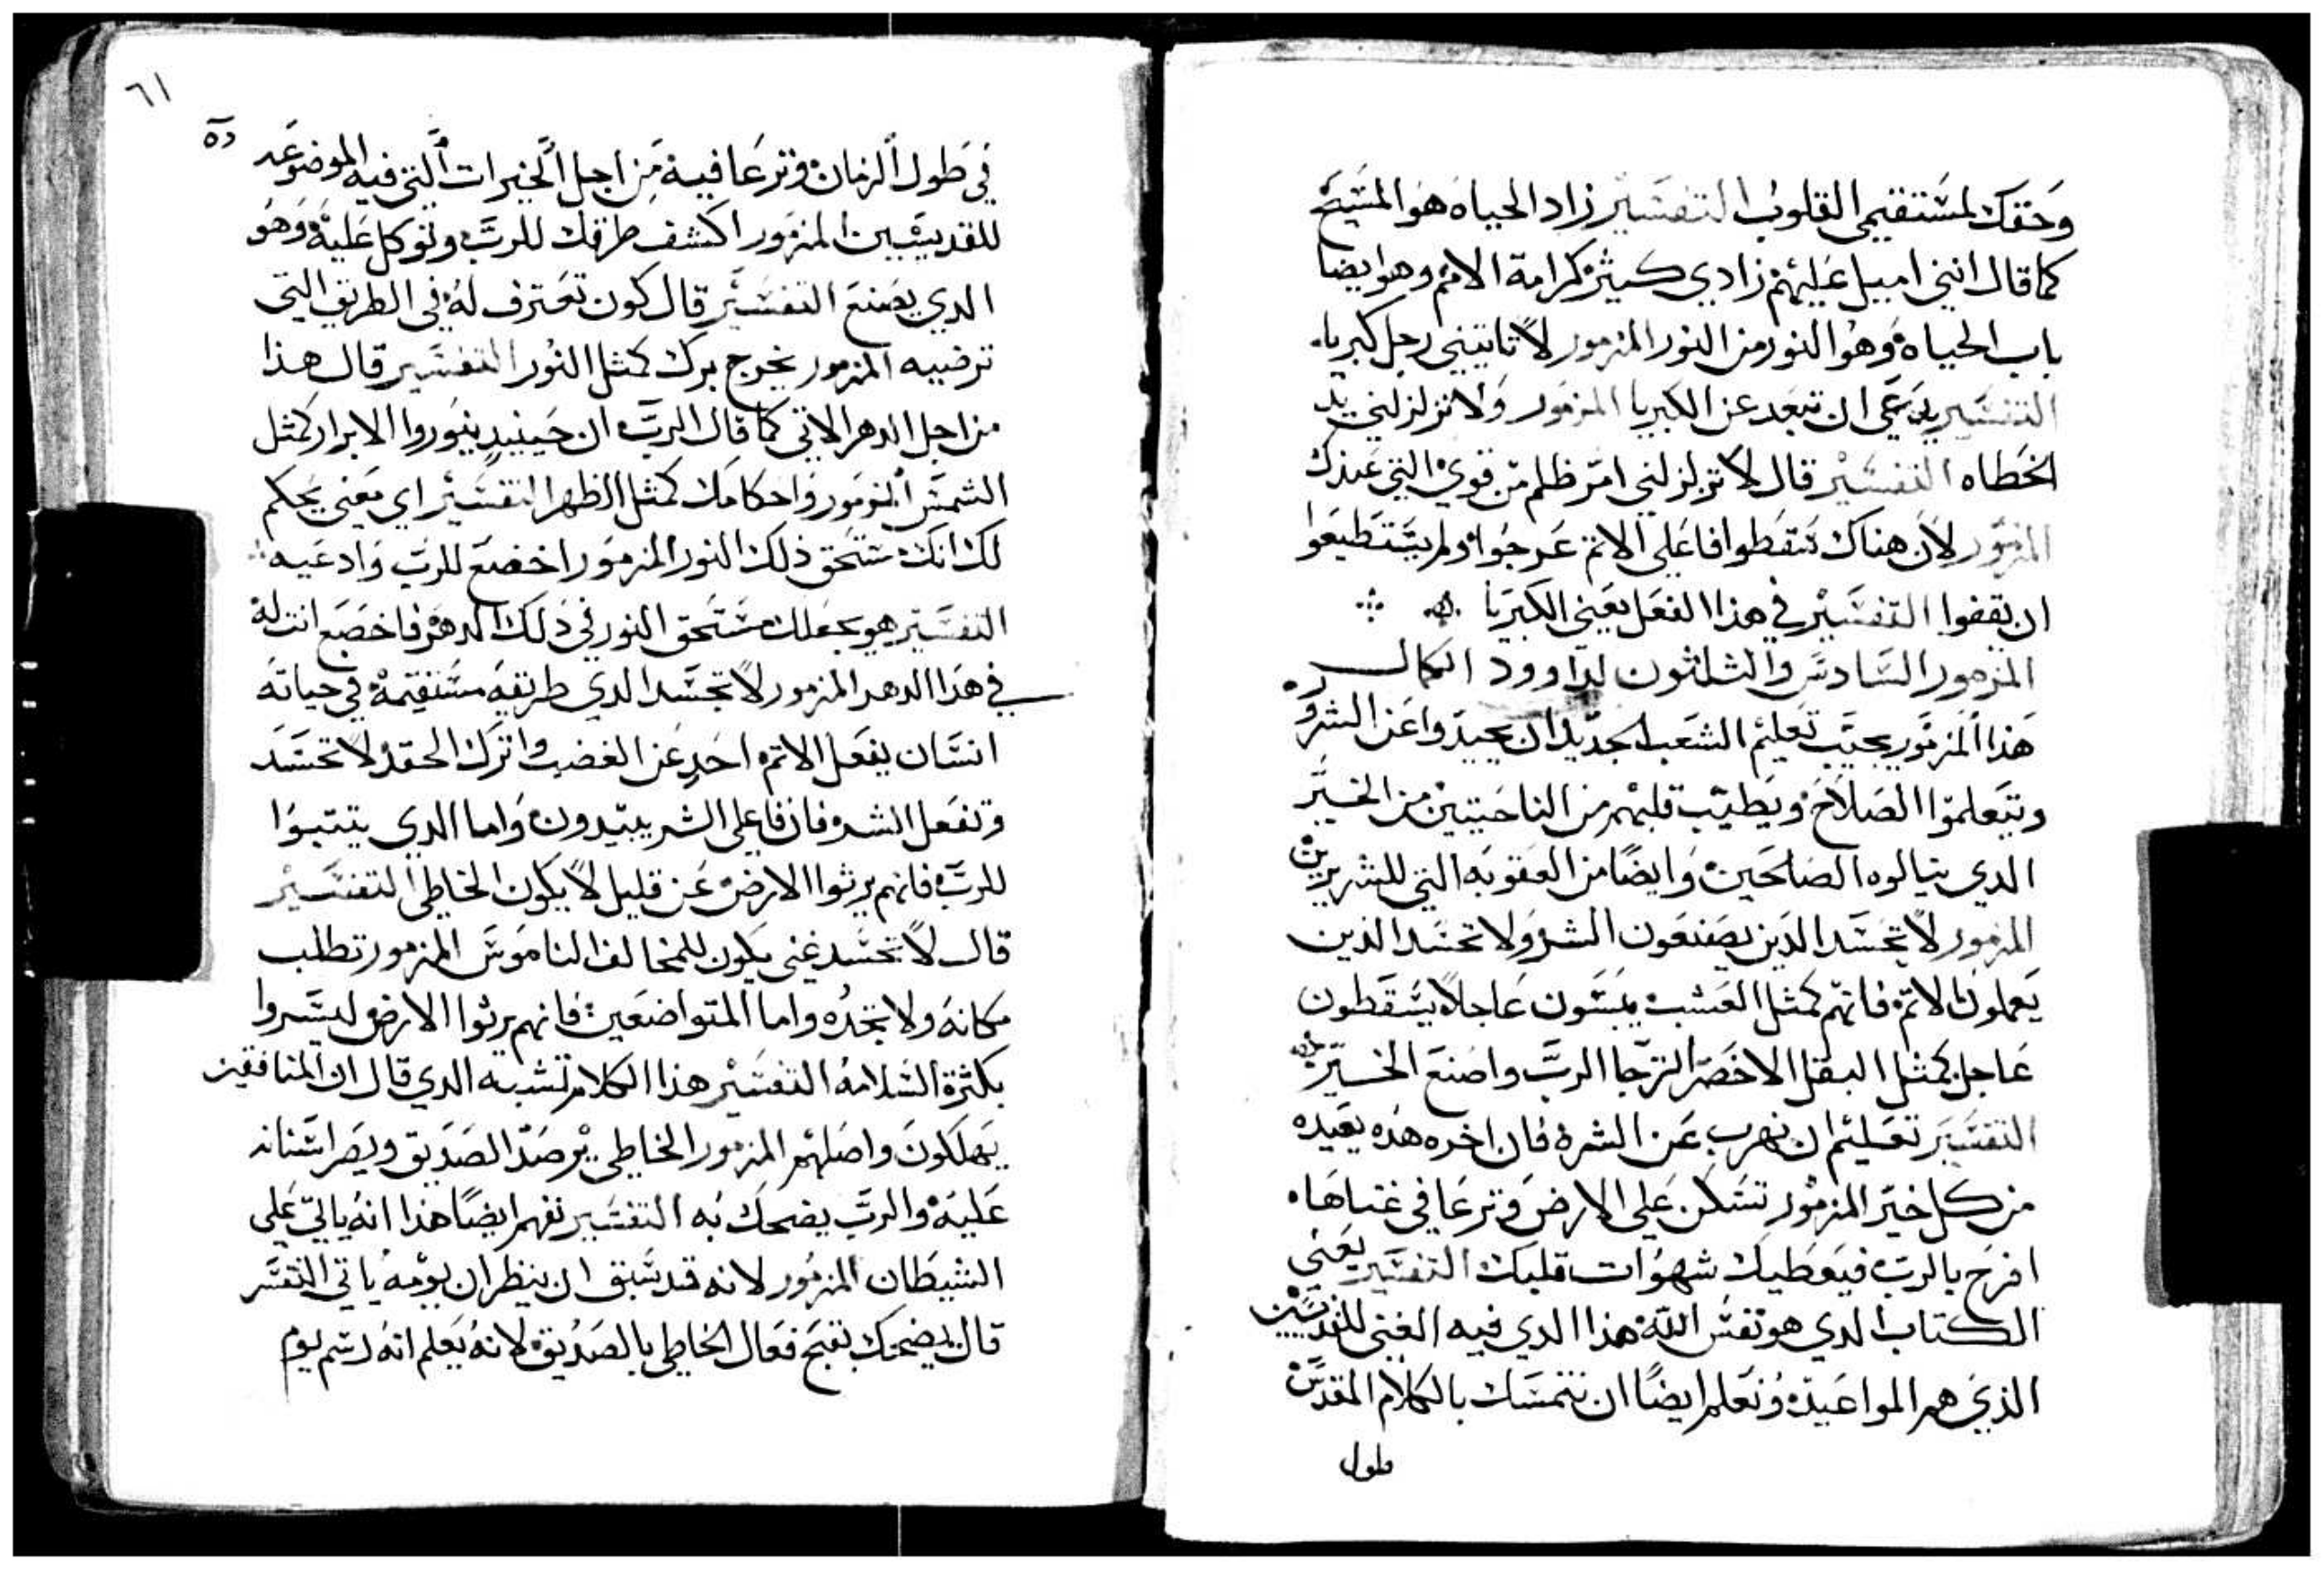 وحقك لمستقيمى القلوب التفسير زاد الحياه هو المسيح
كما قال انني اميل عليهم زادي كيثر كرامة الامم وهو ايضا
باب الحياه وهو النور من النور المزمور لا تاتيني رجل كبرياء
التفسير يعني ان تبعد عن الكبريا المزمور ولا تزلزلني يد
الخطاه التفسير قال لا تزلزلني امر ظلم من قوي التي عندك
المزمور لان هناك سقطوا فاعلي الاثم عرجوا ولم يستطيعوا
ان يقفوا التفسير في هذا الفعل يعني الكبريا
المزمور السادس والثلثون لداوود الكمال
هذا المزمور يجيب تعليم الشعب الجديد ان يحيدوا عن الشروره
ويتعلموا الصلاح ويطيب قلبهم من الناحيتين من الخير
الدي ينالوه الصالحين وايضا من العقوبه التي للشريرين
المزمور لا تحسد الذين يصنعون الشر ولا تحسد الذين
يعملون الاثم فانهم كمثل العشب يبسون عاجلا يسقطون
عاجل كمثل البقل الاخضر اترجا الرب واصنع الخير
التفسير تعليم ان نهرب عن الشر فان اخره هذه بعيده
من كل خير المزمور تسكن على الارض وترعا في غناها
افرح بالرب فيعطيك شهوات قلبك التفسير يعني
الكتاب الدي هو نفس الله هذا الدي فيه الغني للقديسين
الذي هم المواعيد ونعلم ايضا ان نتمسك بالكلام المقدس
طول
٦١
في طول الزمان وترعا فيه من اجل الخيرات التي فيه الموضوعه
للقديسين المزمور اكشف طرقك للرب وتوكل عليه وهو
الدي يصنع التفسير قال كون تعترف له في الطريق التي
ترضيه المزمور يخرج برك كمثل النور التفسير قال هذا
من اجل الدهر الاتي كما قال الرب ان حينيد ينوروا الابرار كمثل
الشمس المزمور واحكامك كمثل الظهر التفسير اي معني يحكم
لك انك مستحق ذلك النور المزمور اخضع للرب وادعيه
التفسير هو يجعلك مستحق النور في ذلك الدهر فاخضع انت له
في هذا الدهر المزمور لا تحسد الدي طريقه مستقيمة في حياته
انسان يفعل الاثم احد عن الغضب واترك الحقد لا تحسد
وتفعل الشر فان فاعلي الشر يبيدون واما الدي يتبتوا
للرب فانهم يرثوا الارض عن قليل لا يكون الخاطي التفسير
قال لا تحسد غني يكون للمخالف الناموس المزمور تطلب
مكانه ولا تجده واما المتواضعين فانهم يرثوا الارض ليسروا
بكثرة السلامه التفسير هذا الكلام تشبه الدي قال ان المنافقين
يهلكون واصلهم المزمور الخاطي يرصد الصديق ويصر اسنانه
عليه والرب يضحك به التفسير نفهم ايضا هذا انه ياتي على
الشيطان المزمور لانه قد سبق ان ينظر ان يومه ياتي التفسر
قال يضحك بقبح فعال الخاطي بالصديق لانه يعلم انه رسم يوم